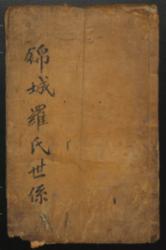 錦城羅氏世係